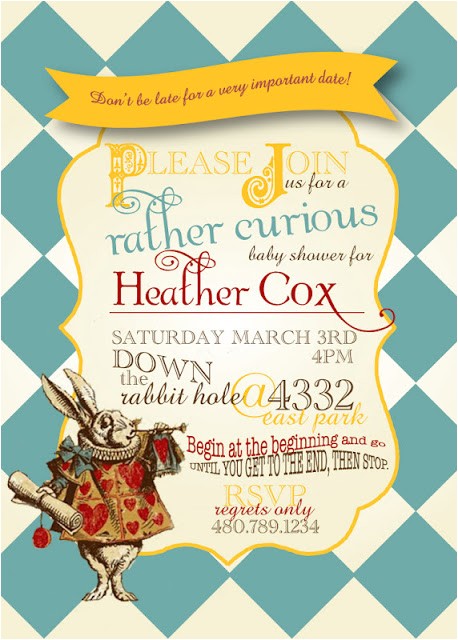 Don't be late for a very important date!
PLEASE JOIN
us for a
rather curious
baby shower for
Heather Cox
SATURDAY MARCH 3RD
4PM
DOWN
the
rabbit hole @ 4332
east park
Begin at the beginning and go
UNTIL YOU GET TO THE END, THEN STOP.
RSVP
regrets only
480.789.1234